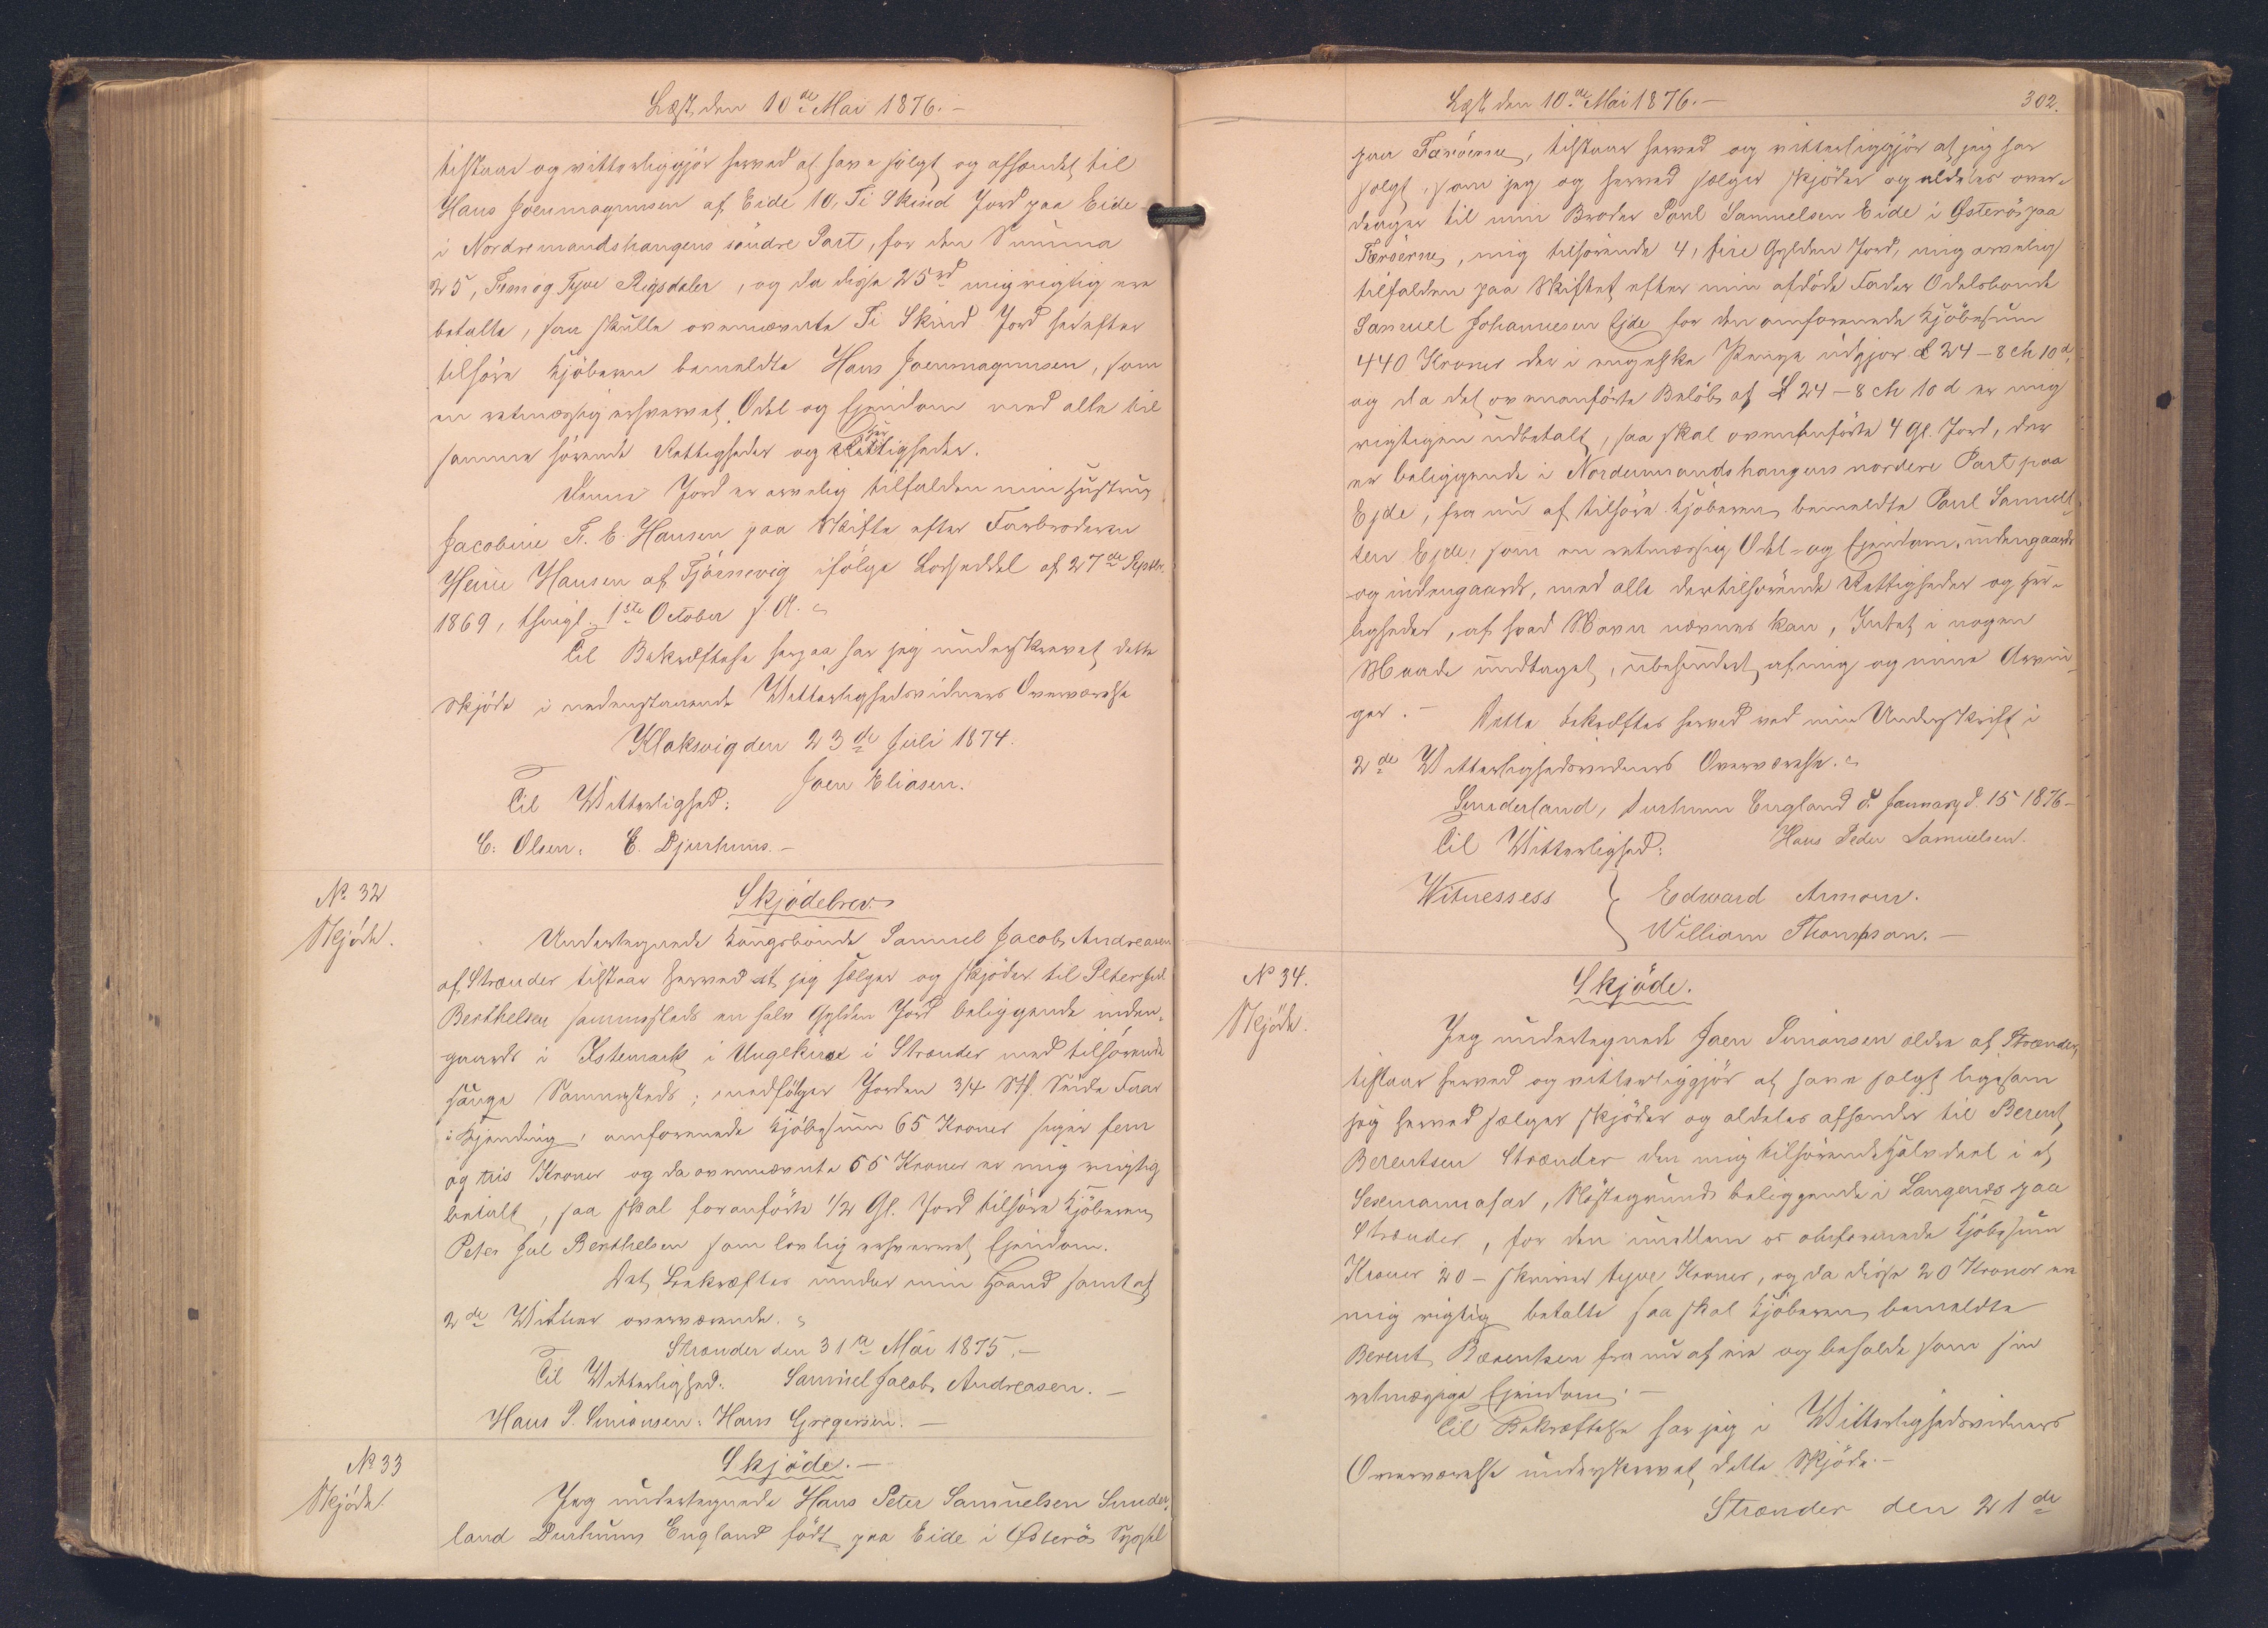 Læst den 10de Mai 1876.-
tilstaar og vitterliggjör herved at have solgt og afhændet til
Hans Joenmagnusen af Eide 10, Ti Skind Jord paa Eide
i Nordremandshaugens söndre Part, for den Summa
25, Fem og Tyve Rigsdaler, og da disse 25rd mig rigtig ere
betalte, saa skulle ovennævnte Ti Skind Jord herefter
tilhøre Kjöberen bemeldte Hans Joenmagnusen, som
en retmæssig erhvervet Odel og Ejendom med alle til
samme hörende Rettigheder og Herligheder.
Denne Jord er arvelig tilfalden min Hustru
Jacobine Fr. E. Hansen paa Skifte efter Farbroderen
Heine Hansen af Tjörnevig ifölge Lodseddel af 27de Septbr.
1869, thingl. 1ste October s. A.
Til Bekræftelse herpaa har jeg underskrevet dette
Skjöde i nedenstaaende Vitterlighedsvidners Overværelse
Klaksvig den 23de Juli 1874.
Joen Eliasen.
Til Vitterlighed:
C. Olsen. E. Djurhuus.-
No 32
Skjöde.
Skjödebrev.
Undertegnede Kongsbonde Samuel Jacob Andreasen
af Strænder tilstaar herved at jeg sælger og skjöder til Peter Jul
Berthelsen sammesteds en halv Gylden Jord beliggende inden-
gaards i Istemark i Ungekinn i Strænder med tilhörende
Hauge Sammesteds; medfölger Jorden 3/4 St. Seide Faar
i Kjending, omforenede Kjöbesum 65 Kroner siger fem
og tris Kroner og da ovennævnte 65 Kroner er mig rigtig
betalt, saa skal foranförte 1/2 Gl. Jord tilhöre Kjöberen
Peter Jul Berthelsen som lovlig erhvervet Ejendom.
Det bekræftes under min Haand samt af
2de Vidner overværende.
Strænder den 31te Mai 1875.-
Til Vitterlighed. Samuel Jacob Andreasen.-
Hans P. Simonsen. Hans Gregersen.-
No 33
Skjöde.
Skjöde.-
Jeg undertegnede Hans Peter Samuelsen Sunder-
land Durhum England födt paa Eide i Østerö Syssel
Læst den 10de Mai 1876.-
302.
paa Færöerne, tilstaar herved og vitterliggjör at jeg har
solgt, som jeg og herved sælger skjöder og aldeles over-
drager til min Broder Poul Samuelsen Eide i Østerö paa
Færöerne, mig tilhörende 4, fire Gylden Jord, mig arvelig
tilfalden paa Skiftet efter min afdöde Fader Odelsbonde
Samuel Johannesen Ejde for den omforenede Kjöbesum
440 Kroner der i engelske Penge udgjör £ 24-8 ch 10 d,
og da det ovenanförte Beløb af £ 24-8 ch 10 d er mig
rigtigen udbetalt, saa skal ovenanförte 4 Gl. Jord, der
er beliggende i Nordremandshaugens nordere Part paa
Ejde, fra nu af tilhöre Kjöberen bemeldte Poul Samuel-
sen Ejde, som en retmæssig Odel- og Ejendom, udengaards
og indengaards, med alle dertilhörende Rettigheder og Her-
ligheder, af hvad Navn nævnes kan, Intet i nogen
Maade undtaget, ubehindret af mig og mine Arvin-
ger.- Dette bekræftes herved ved min Underskrift i
2de Vitterlighedsvidners Overværelse.
Sunderland, Durhum England d. January d. 15 1876-
Til Vitterlighed: Hans Peder Samuelsen.
Witnessess { Edward Armour.
William Thompson.-
No 34.
Skjöde.
Skjöde.
Jeg undertegnede Joen Simonsen ældre af Strænder,
tilstaar herved og vitterliggjör at have solgt ligesom
jeg herved sælger skjöder og aldeles afhænder til Berent
Berentsen Strænder den mig tilhörende Halvdeel i et
Sexmannafar, Nöstegrund beliggende i Langenæs paa
Strænder, for den imellem os omforenede Kjöbesum
Kroner 20- skriver tyve Kroner, og da disse 20 Kroner ere
mig rigtig betalte saa skal Kjöberen bemeldte
Berent Bærentsen fra nu af eie og beholde som sin
retmæssige Ejendom.-
Til Bekræftelse har jeg i Vitterlighedsvidners
Overværelse underskrevet dette Skjöde.-
Strænder den 21de